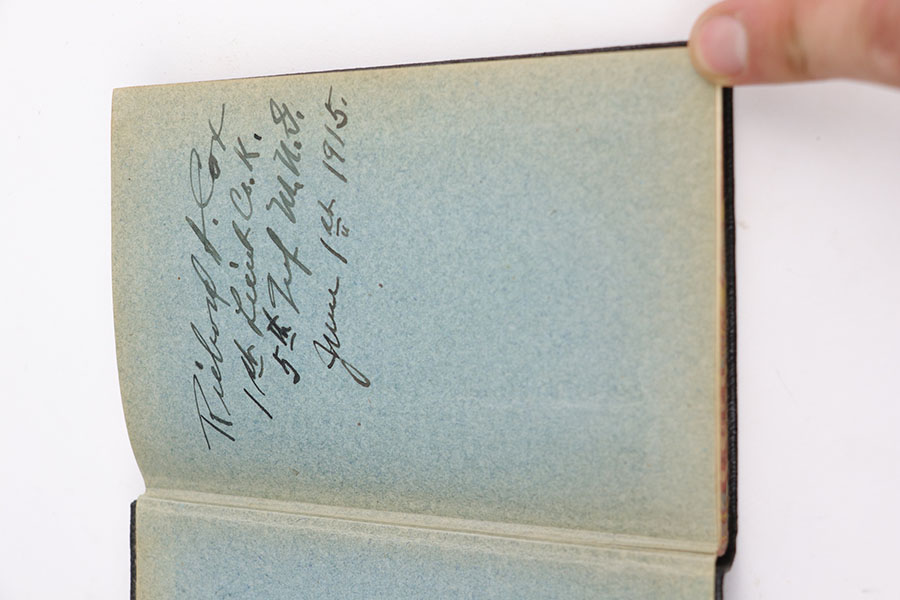 Richard A. Cox
1st Lieut Co. K.
5th Inf M.N.G.
June 1st 1915.